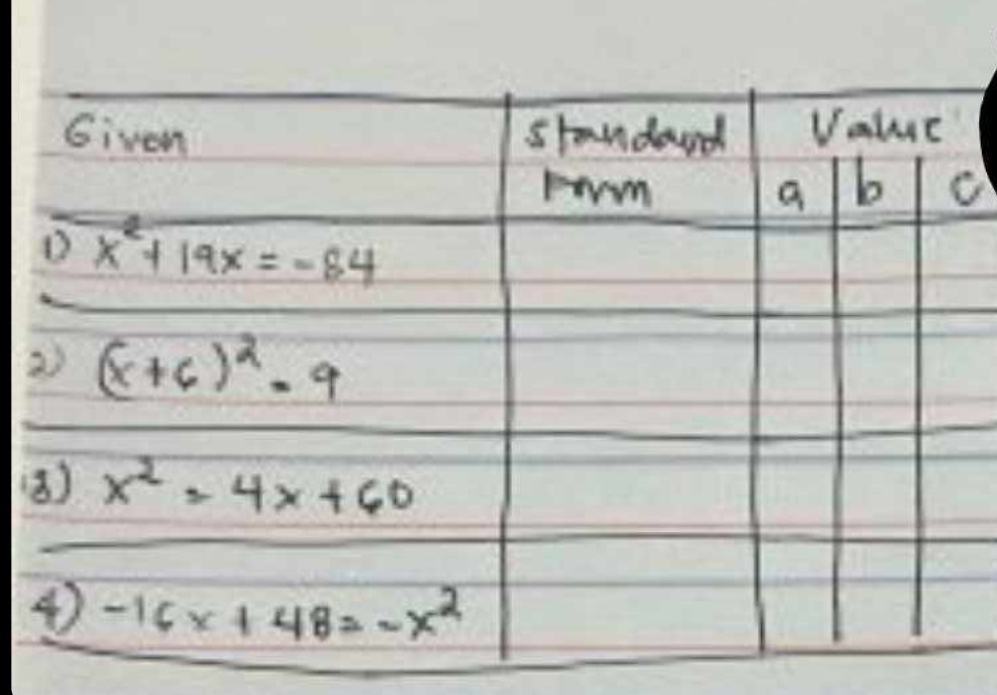 Given standard Value
Form a b c
1) x²+19x=-84
2) (x+6)²=9
3) x²=4x+60
4) -16x+48=-x²